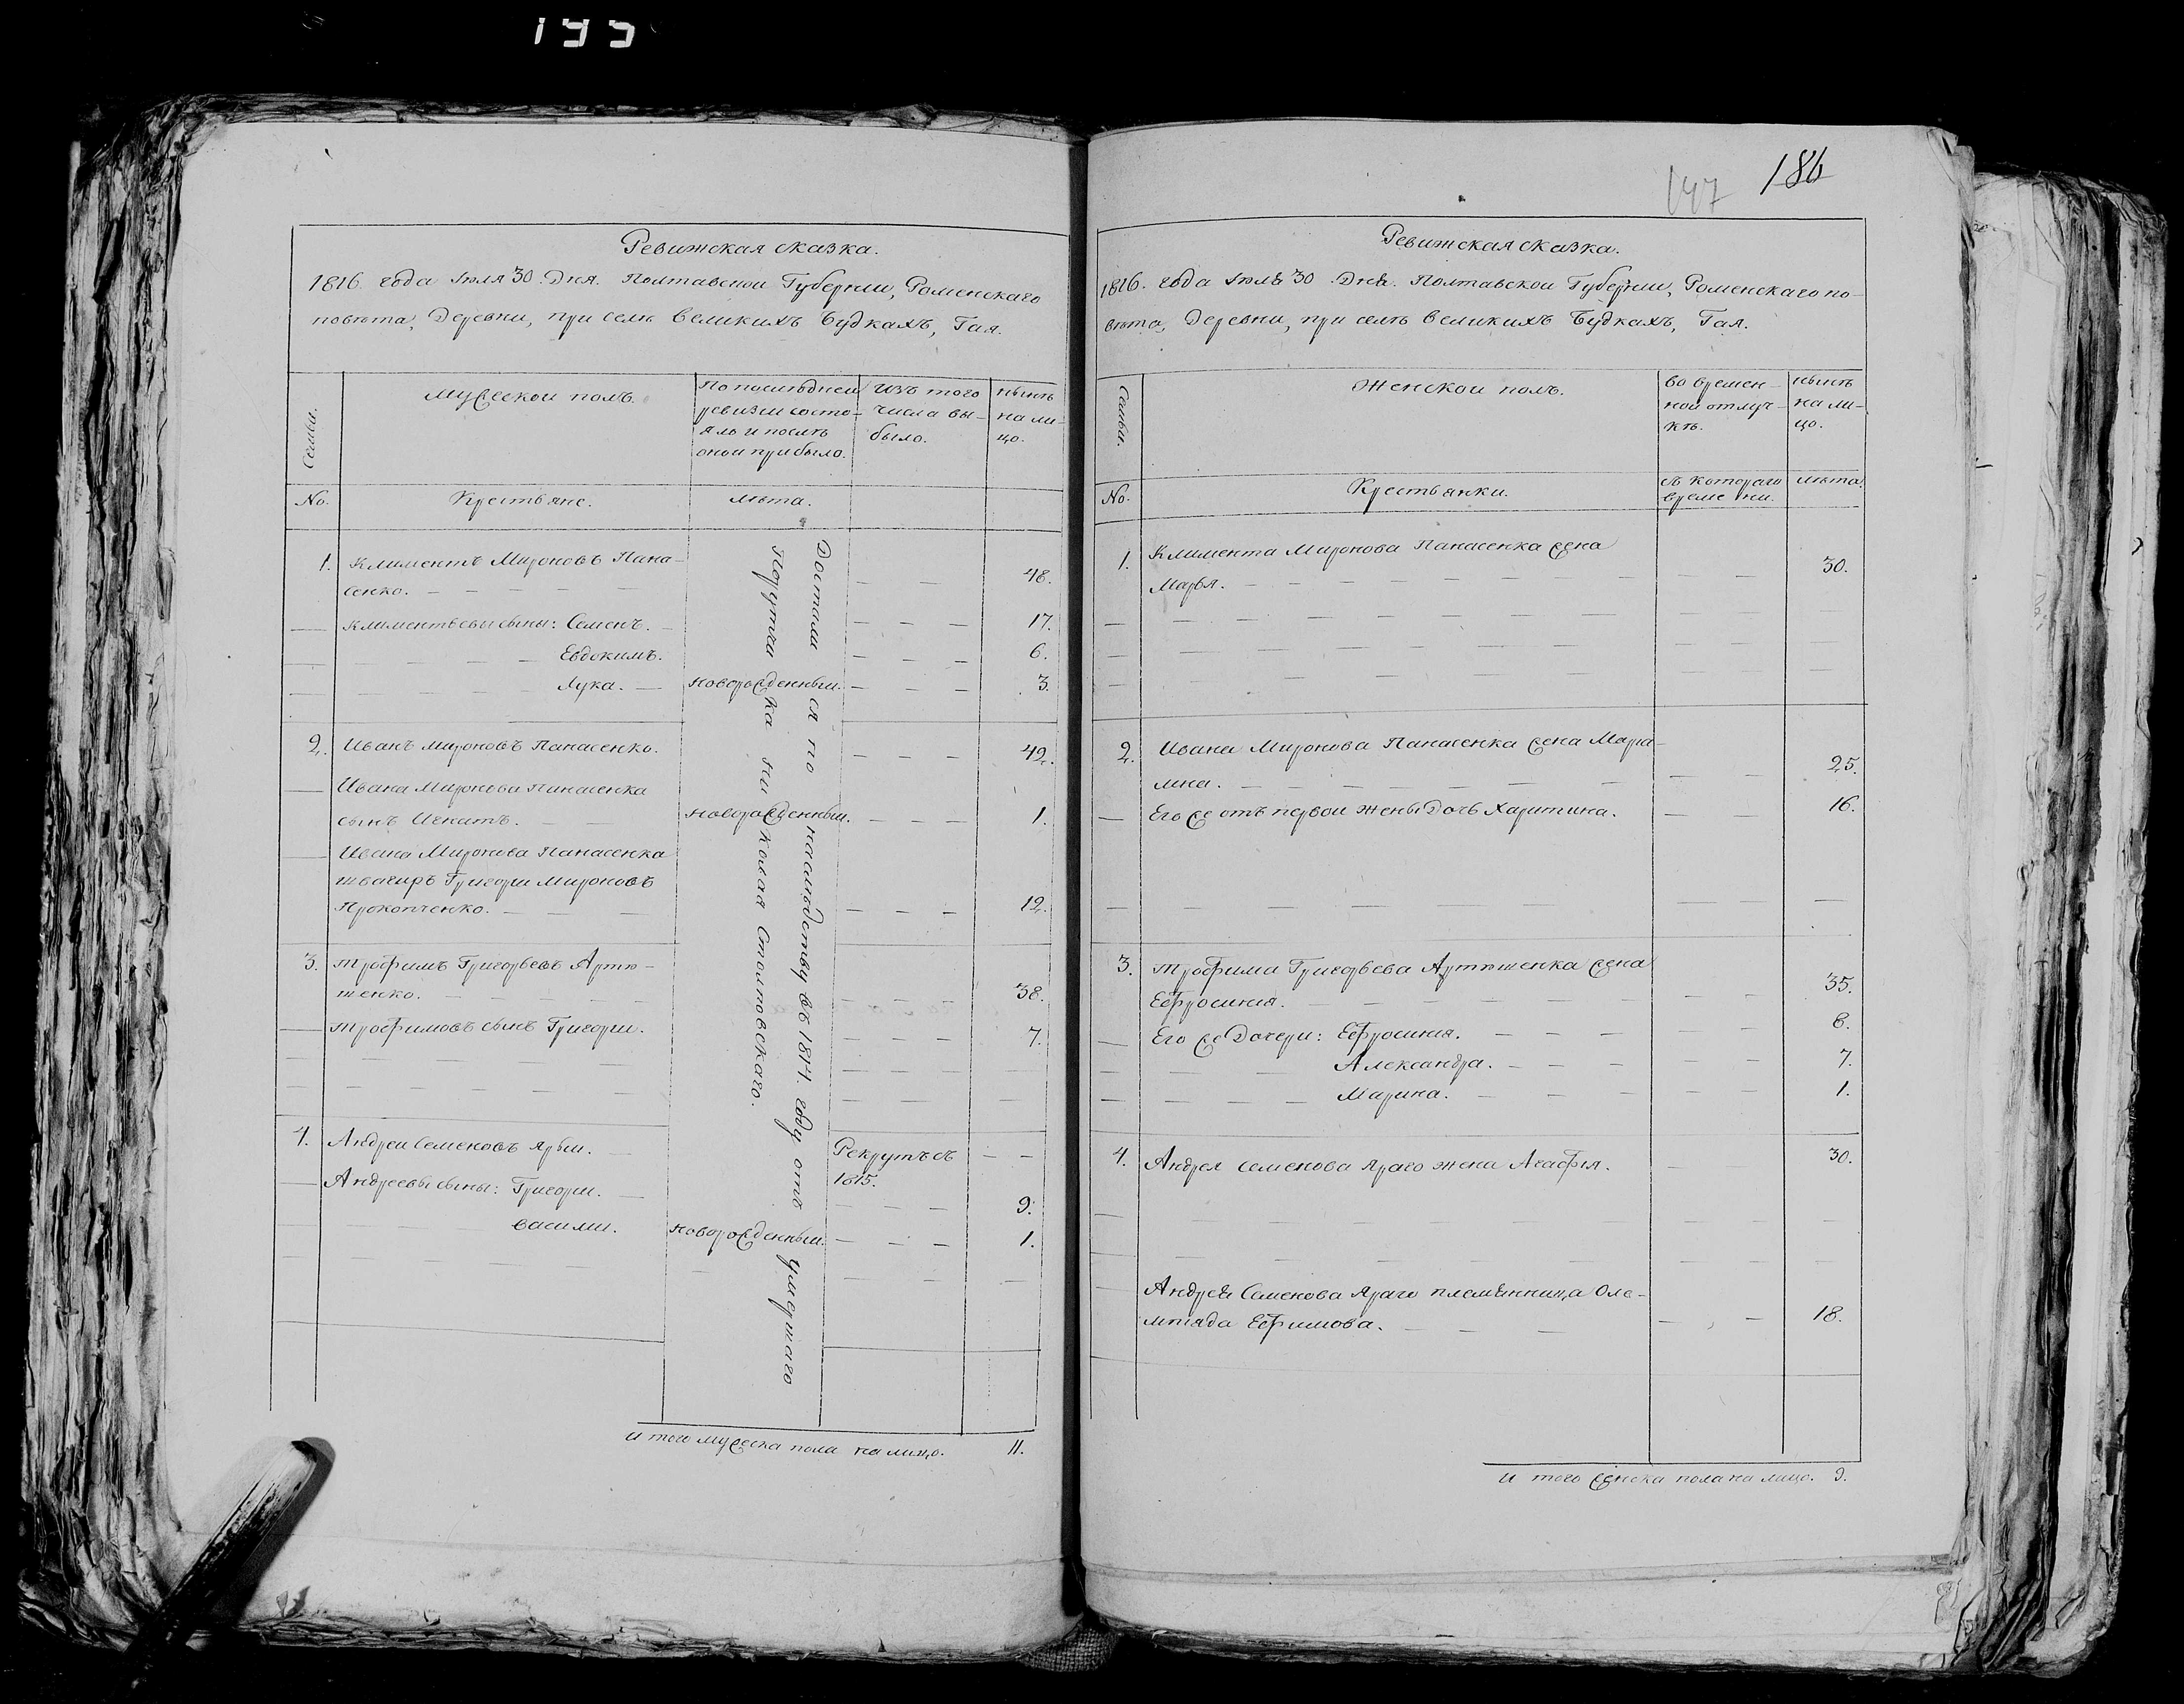 195
Ревижская сказка.
1816. года Іюля 30. Дня. Полтавской Губерніи, Роменскаго
повѣта, Деревни, при селѣ Великихъ Будкахъ, Гая.
Семьи.
Мужеской полъ.
По последней
ревизіи состо-
яло и послѣ
оной прибыло.
Изъ того
числа вы-
было.
Нынѣ
на ли-
цо.
No.
Крестьяне.
Лѣта.
1. Климентъ Мироновъ Пана-
сенко. 48.
Климентьевы сыны: Семенъ. 17.
Евдокимъ. 6.
Лука. Новорожденный. 3.
2. Иванъ Мироновъ Панасенко. 42.
Ивана Миронова Панасенка
сынъ Игнатъ. Новорожденный. 1.
Ивана Миронова Панасенка
швагиръ Григорій Мироновъ
Прокопченко. 12.
3. Трофимъ Григорьевъ Артю-
шенко. 38.
Трофимовъ сынъ Григорій. 7.
4. Андрей Семеновъ Ярый. Рекрутъ съ
1815.
Андреевы сыны: Григорій. 9.
Василий. Новорожденный. 1.
Достались по наслѣдству въ 1814. году отъ умершаго
Порутчика Николая Столповскаго.
И того мужеска пола на лицо. 11.
147 186
Ревижская сказка.
1816. года Іюля 30. Дня. Полтавской Губерніи, Роменскаго по-
вѣта, Деревни, при селѣ Великихъ Будкахъ, Гая.
Семьи.
Женской полъ.
Во времен-
ной отлуч-
кѣ.
Нынѣ
на ли-
цо.
No.
Крестьянки.
Съ котораго
времени.
Лѣта.
1. Климента Миронова Панасенка жена
Марья. 30.
2. Ивана Миронова Панасенка жена Мара-
мна. 25.
Его же отъ первой жены Дочь Харитина. 16.
3. Трофима Григорьева Артюшенка жена
Ефросинія. 35.
Его же Дочери: Ефросинія. 8.
Александра. 7.
Марина. 1.
4. Андрея Семенова Яраго жена Агафія. 30.
Андрея Семенова Яраго племянница Оле-
мпіяда Ефимова. 18.
И того женска пола на лицо. 9.